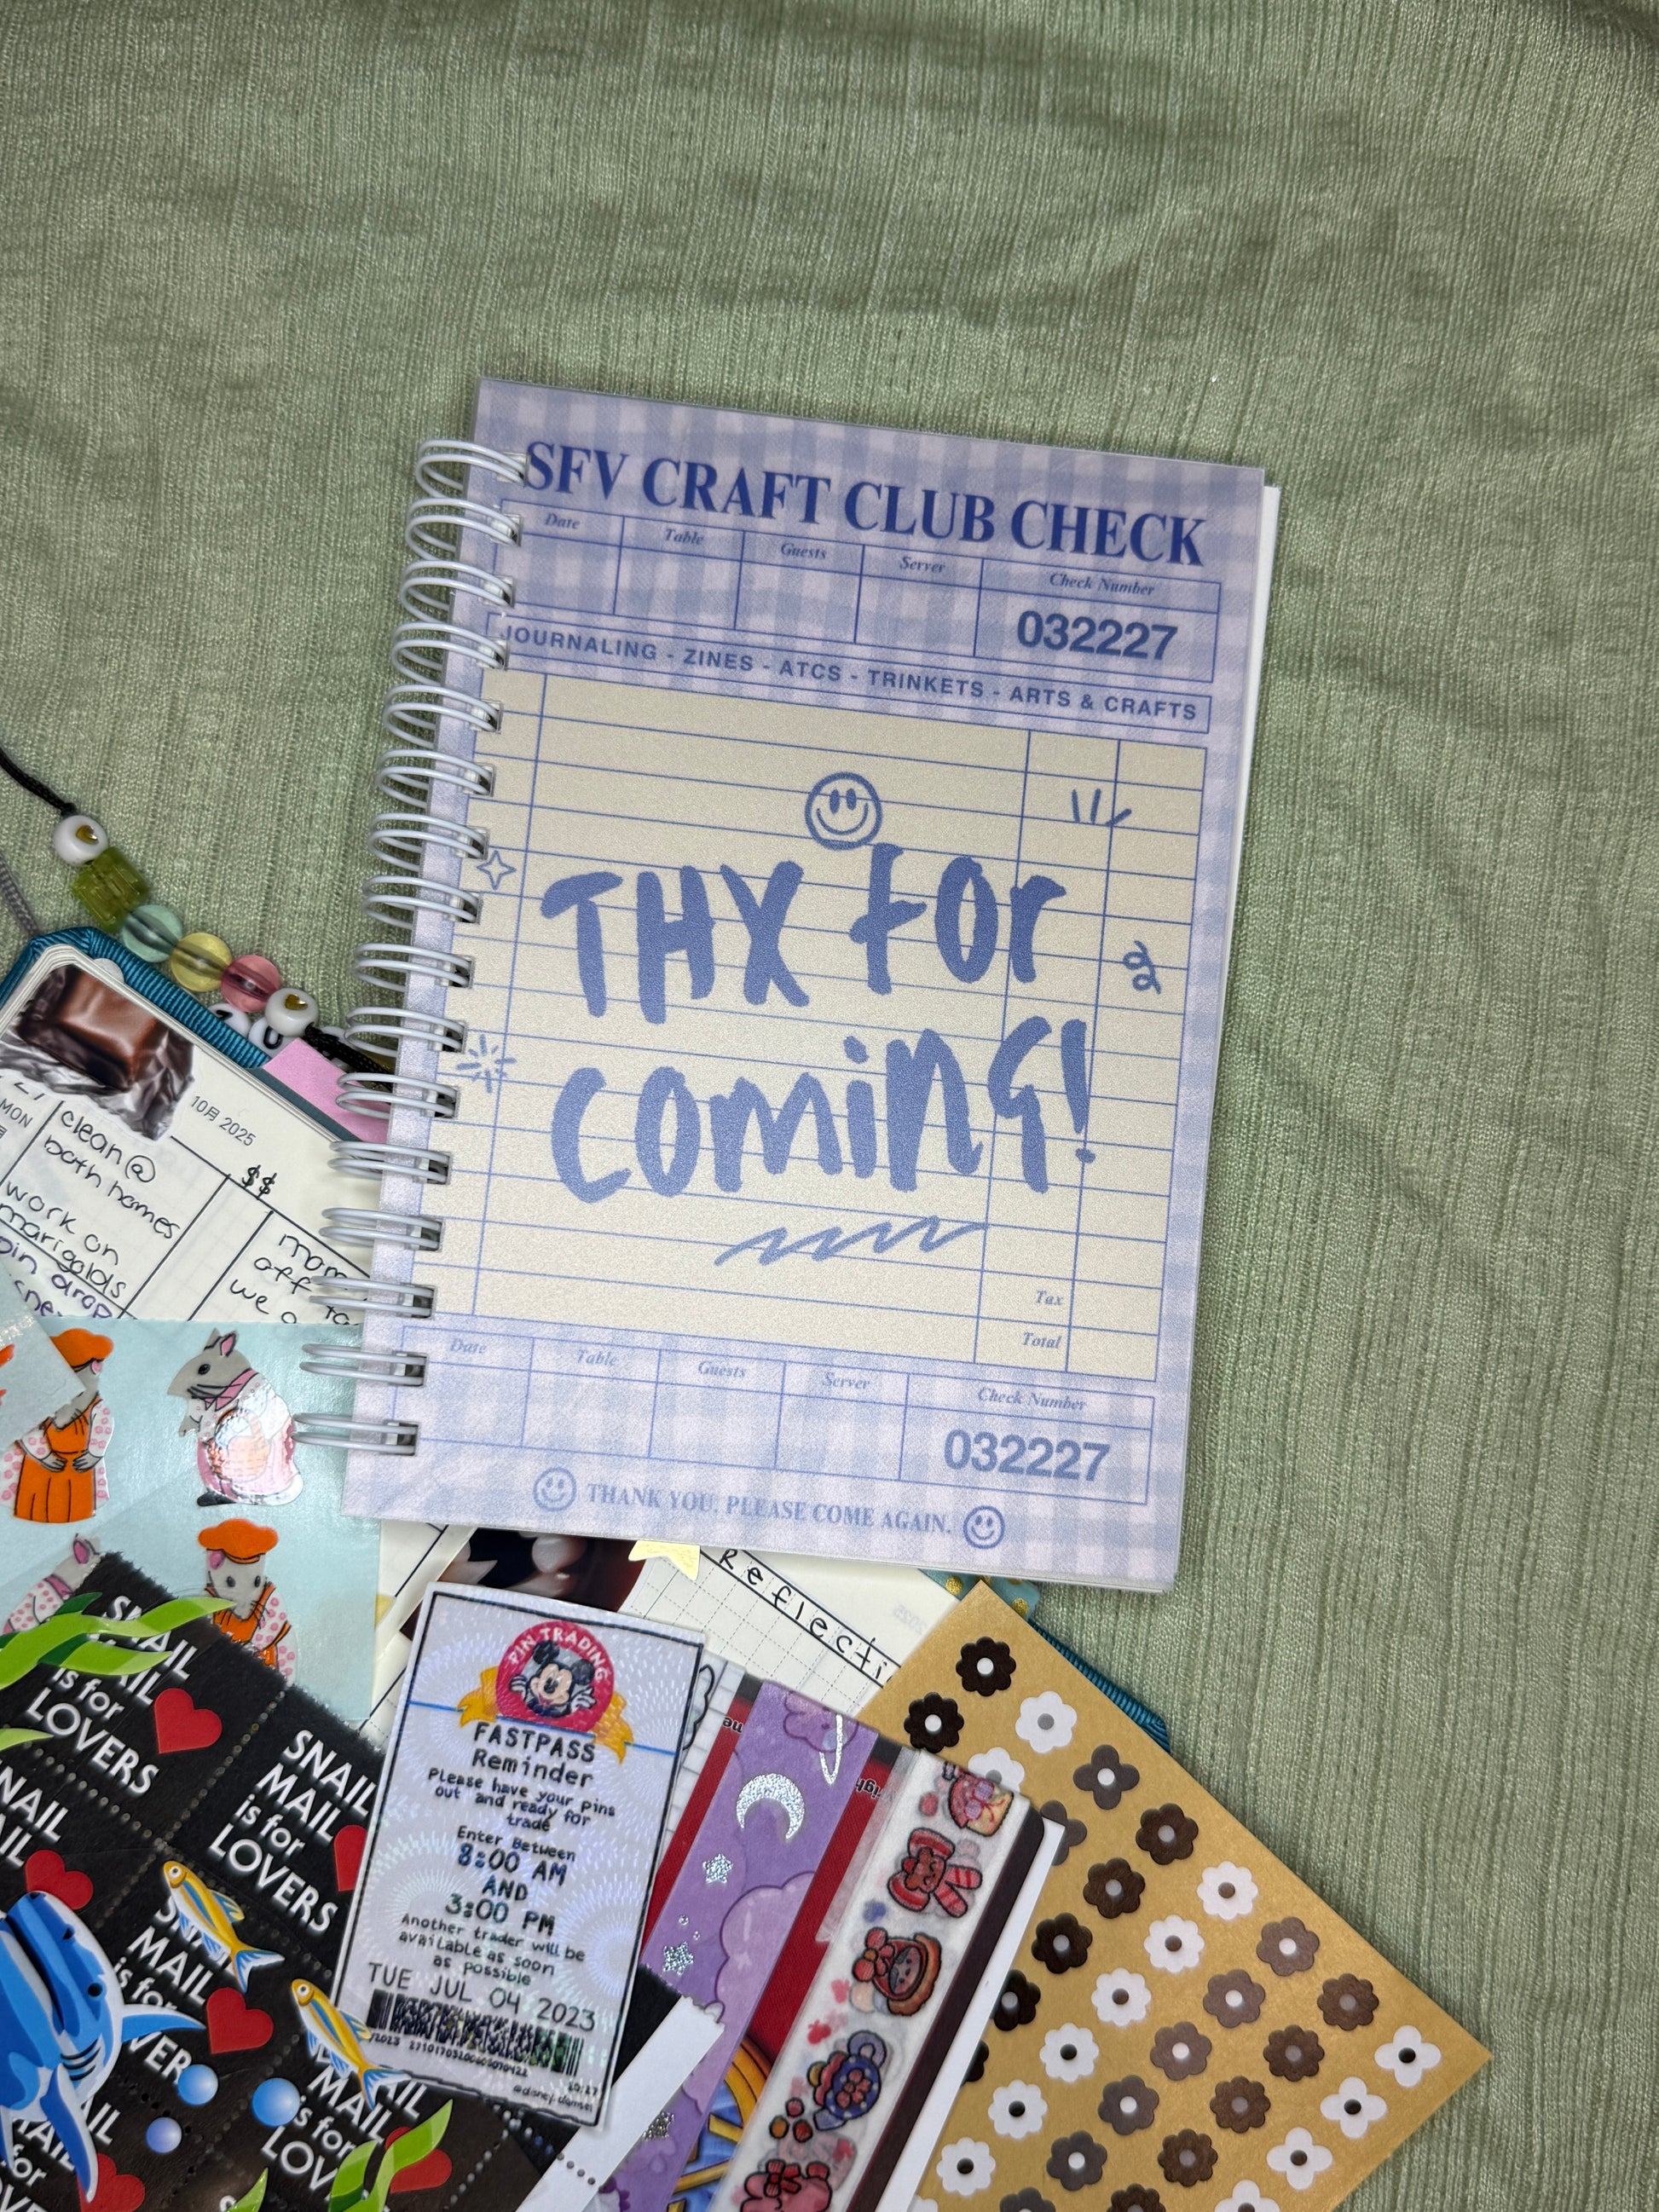 SFV CRAFT CLUB CHECK
Date Table Guests Server Check Number
032227
JOURNALING - ZINES - ATCS - TRINKETS - ARTS & CRAFTS
THX FOR
COMING!
Tax
Total
Date Table Guests Server Check Number
032227
THANK YOU. PLEASE COME AGAIN.
10月 2025
MON
clean @
both homes
work on
marigolds
pin drop
$$
mom
off to
we
Reflecti
PIN TRADING
FASTPASS
Reminder
Please have your pins
out and ready for
trade
Enter Between
8:00 AM
AND
3:00 PM
Another trader will be
available as soon
as possible
TUE JUL 04 2023
SNAIL
MAIL
is for
LOVERS
SNAIL
MAIL
is for
LOVERS
SNAIL
MAIL
is for
LOVERS
MAIL
is for
LOV